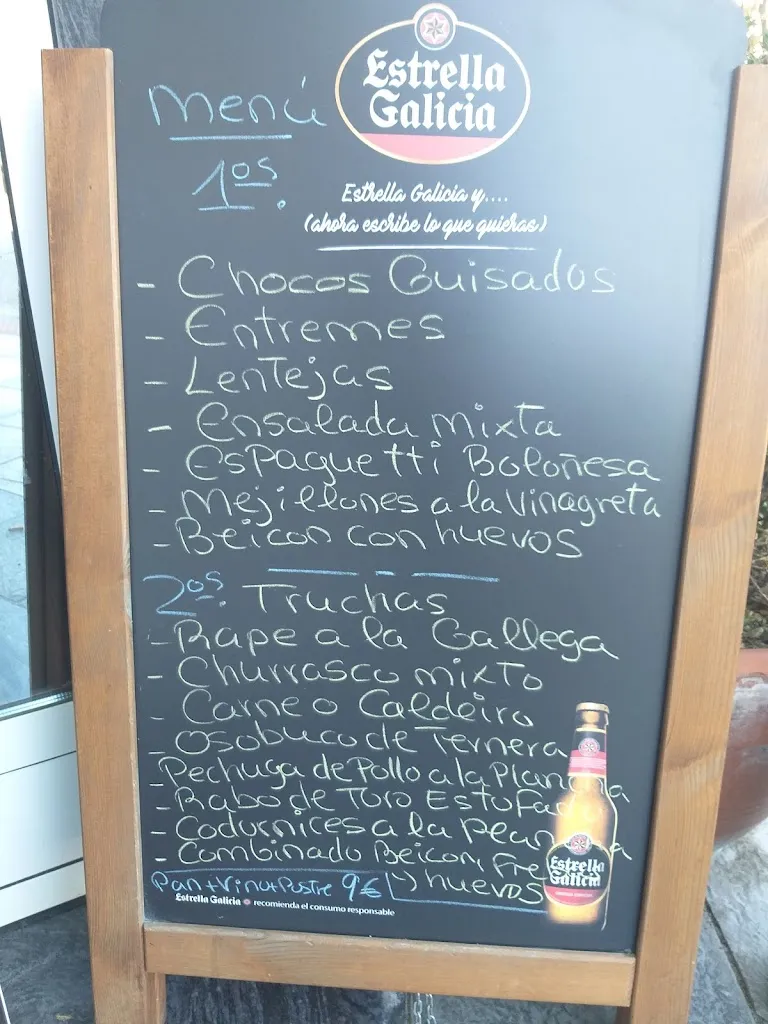 Estrella
Galicia
Menú
1os.
Estrella Galicia y....
(ahora escribe lo que quieras)
- Chocos Guisados
- Entremes
- Lentejas
- Ensalada mixta
- Espaguetti Boloñesa
- Mejillones a la Vinagreta
- Beicon con huevos
2os. Truchas
- Rape a la Gallega
- Churrasco mixto
- Carne o Caldeiro
- Osobuco de Ternera
- Pechuga de Pollo a la Plancha
- Rabo de Toro Estofad
- Codornices a la Plan a
- Combinado Beicon, Fre
y huevos
Pan+Vino+Postre 9€
Estrella
Galicia
Estrella Galicia recomienda el consumo responsable